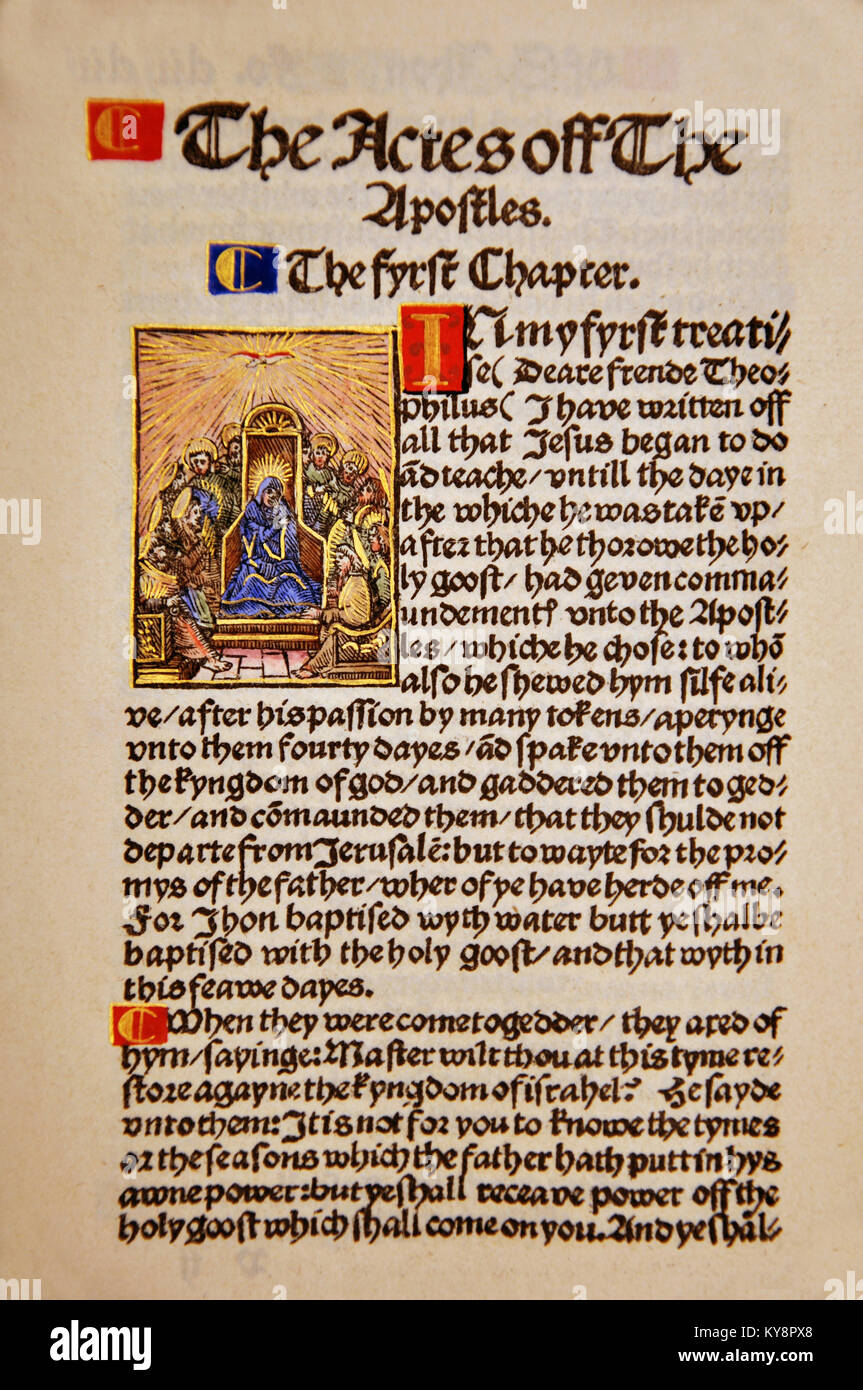 C The Actes off The
Apostles.
C The fyrst Chapter.
IN my fyrst treati⸗
se( Deare frende Theo⸗
philus( I have written off
all that Jesus began to do
ãd teache/ vntill the daye in
the whiche he was takẽ vp/
after that he thorowe the ho⸗
ly goost/ had geven comma⸗
undementꝭ vnto the Apost⸗
les/ whiche he chose: to whõ
also he shewed hym silfe ali⸗
ve/ after his passion by many tokens/ aperynge
vnto them fourty dayes/ ãd spake vnto them off
the kyngdom of god/ and gaddered them to ged⸗
der/ and cõmaunded them/ that they shulde not
departe from Jerusalẽ: but to wayte for the pro⸗
mys of the father/ wher of ye have herde off me.
For Jhon baptised wyth water butt ye shalbe
baptised with the holy goost/ and that wyth in
this feawe dayes.
C When they were come togedder/ they axed of
hym/ sayinge: Master wilt thou at this tyme re⸗
store agayne the kyngdom of israhel? He sayde
vnto them: It is not for you to knowe the tymes
or the seasons which the father hath putt in hys
awne power: but ye shall receave power off the
holy goost which shall come on you. And ye shãl⸗
alamy
Image ID: KY8P8X
www.alamy.com